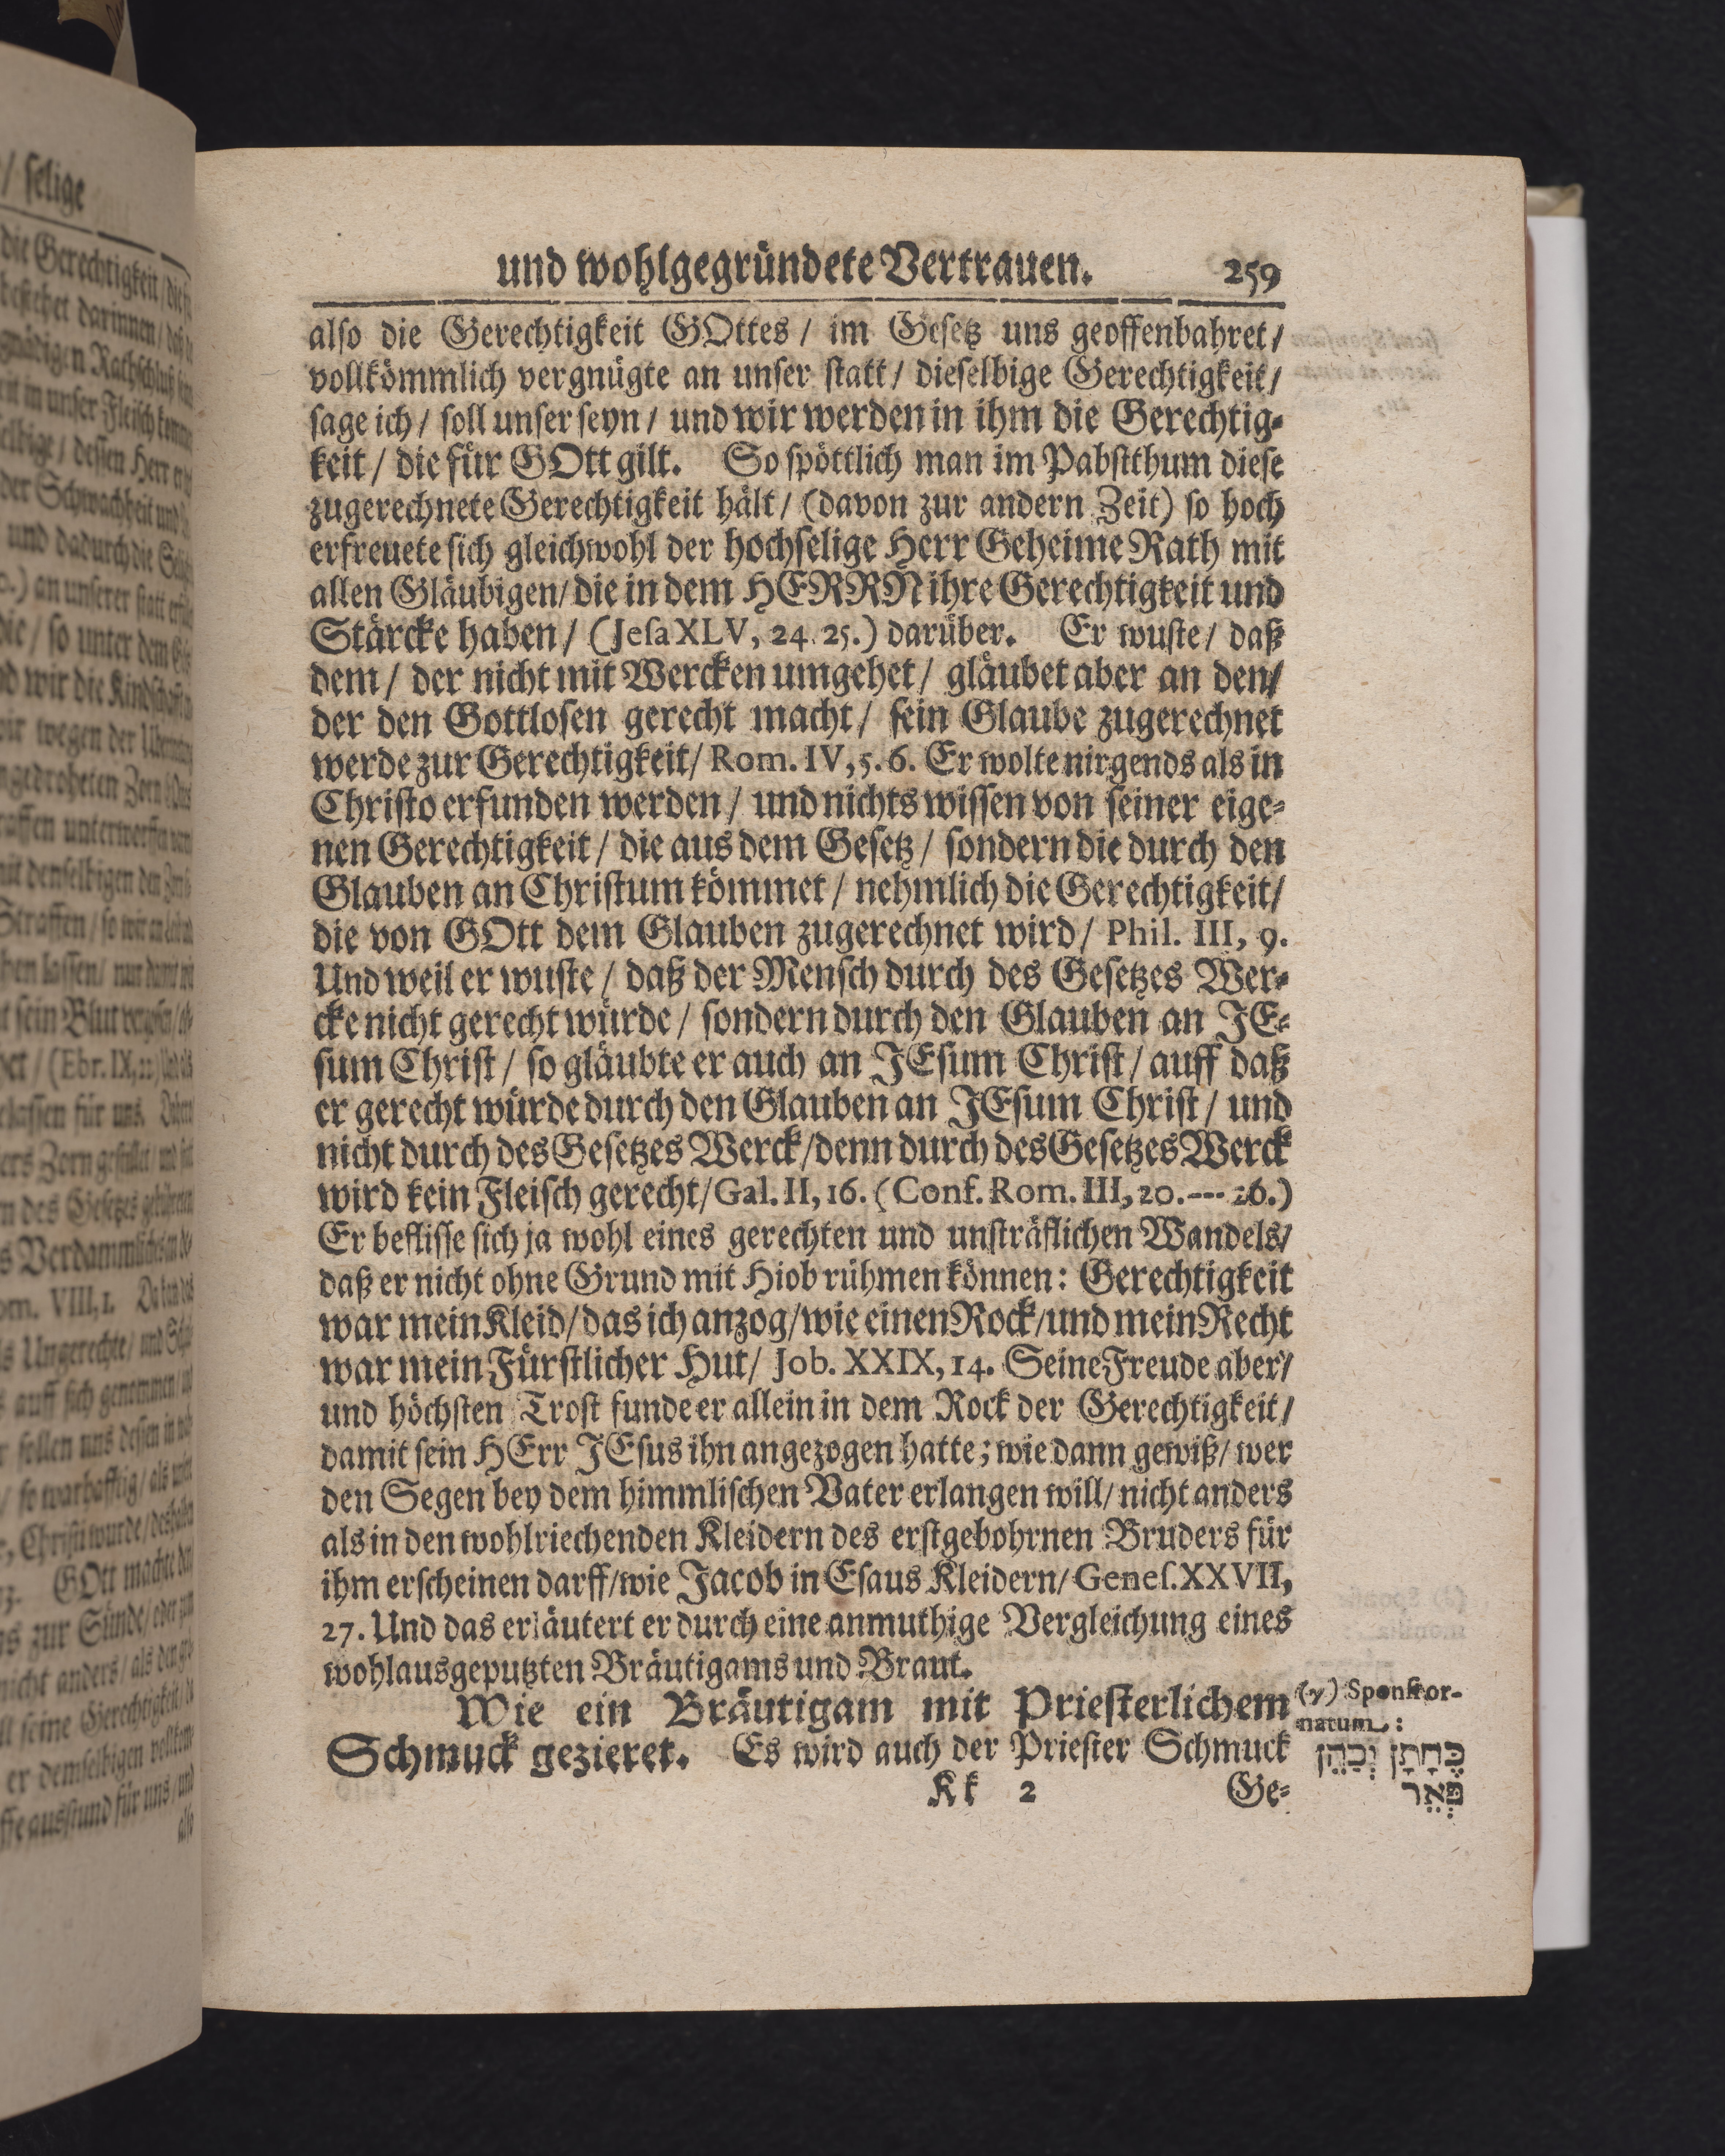 und wohlgegründete Vertrauen. 259
also die Gerechtigkeit GOttes / im Gesetz uns geoffenbahret /
vollkömmlich vergnügte an unser statt / dieselbige Gerechtigkeit /
sage ich / soll unser seyn / und wir werden in ihm die Gerechtig-
keit / die für GOtt gilt. So spöttlich man im Pabstthum diese
zugerechnete Gerechtigkeit hält / (davon zur andern Zeit) so hoch
erfreuete sich gleichwohl der hochselige Herr Geheime Rath mit
allen Gläubigen / die in dem HERRN ihre Gerechtigkeit und
Stärcke haben / (Jesa XLV, 24. 25.) darüber. Er wuste / daß
dem / der nicht mit Wercken umgehet / gläubet aber an den /
der den Gottlosen gerecht macht / sein Glaube zugerechnet
werde zur Gerechtigkeit / Rom. IV, 5. 6. Er wolte nirgends als in
Christo erfunden werden / und nichts wissen von seiner eige-
nen Gerechtigkeit / die aus dem Gesetz / sondern die durch den
Glauben an Christum kömmet / nehmlich die Gerechtigkeit /
die von GOtt dem Glauben zugerechnet wird / Phil. III, 9.
Und weil er wuste / daß der Mensch durch des Gesetzes Wer-
cke nicht gerecht würde / sondern durch den Glauben an JE-
sum Christ / so gläubte er auch an JEsum Christ / auff daß
er gerecht würde durch den Glauben an JEsum Christ / und
nicht durch des Gesetzes Werck / denn durch des Gesetzes Werck
wird kein Fleisch gerecht / Gal. II, 16. (Conf. Rom. III, 20. --- 26.)
Er beflisse sich ja wohl eines gerechten und unsträflichen Wandels /
daß er nicht ohne Grund mit Hiob rühmen können: Gerechtigkeit
war mein Kleid / das ich anzog / wie einen Rock / und mein Recht
war mein Fürstlicher Hut / Job. XXIX, 14. Seine Freude aber /
und höchsten Trost funde er allein in dem Rock der Gerechtigkeit /
damit sein HErr JEsus ihn angezogen hatte; wie dann gewiß / wer
den Segen bey dem himmlischen Vater erlangen will / nicht anders
als in den wohlriechenden Kleidern des erstgebohrnen Bruders für
ihm erscheinen darff / wie Jacob in Esaus Kleidern / Genes. XXVII,
27. Und das erläutert er durch eine anmuthige Vergleichung eines
wohlausgeputzten Bräutigams und Braut.
Wie ein Bräutigam mit Priesterlichem
Schmuck gezieret. Es wird auch der Priester Schmuck
Kk 2 Ge-
(y) Sponsi or-
natum:
כֶּחָתָן יְכַהֵן
פְּאֵר
/ selige
die Gerechtigkeit
bestehet darinnen /
dessen Herr
der Schwachheit und
und dadurch die
an unserer statt
die / so unter dem
wir die Kindschafft
wegen der
Zorn
Straffen /
lassen /
sein Blut
(Ebr. IX, 22)
für uns.
des Gesetzes
VIII, 1.
Ungerechte /
auff sich genommen
sollen uns dessen
so warhafftig / als
Christi wurde /
GOtt machte
zur Sünde /
nicht anders / als
seine Gerechtigkeit
er demselbigen
ausstund für uns / und
also